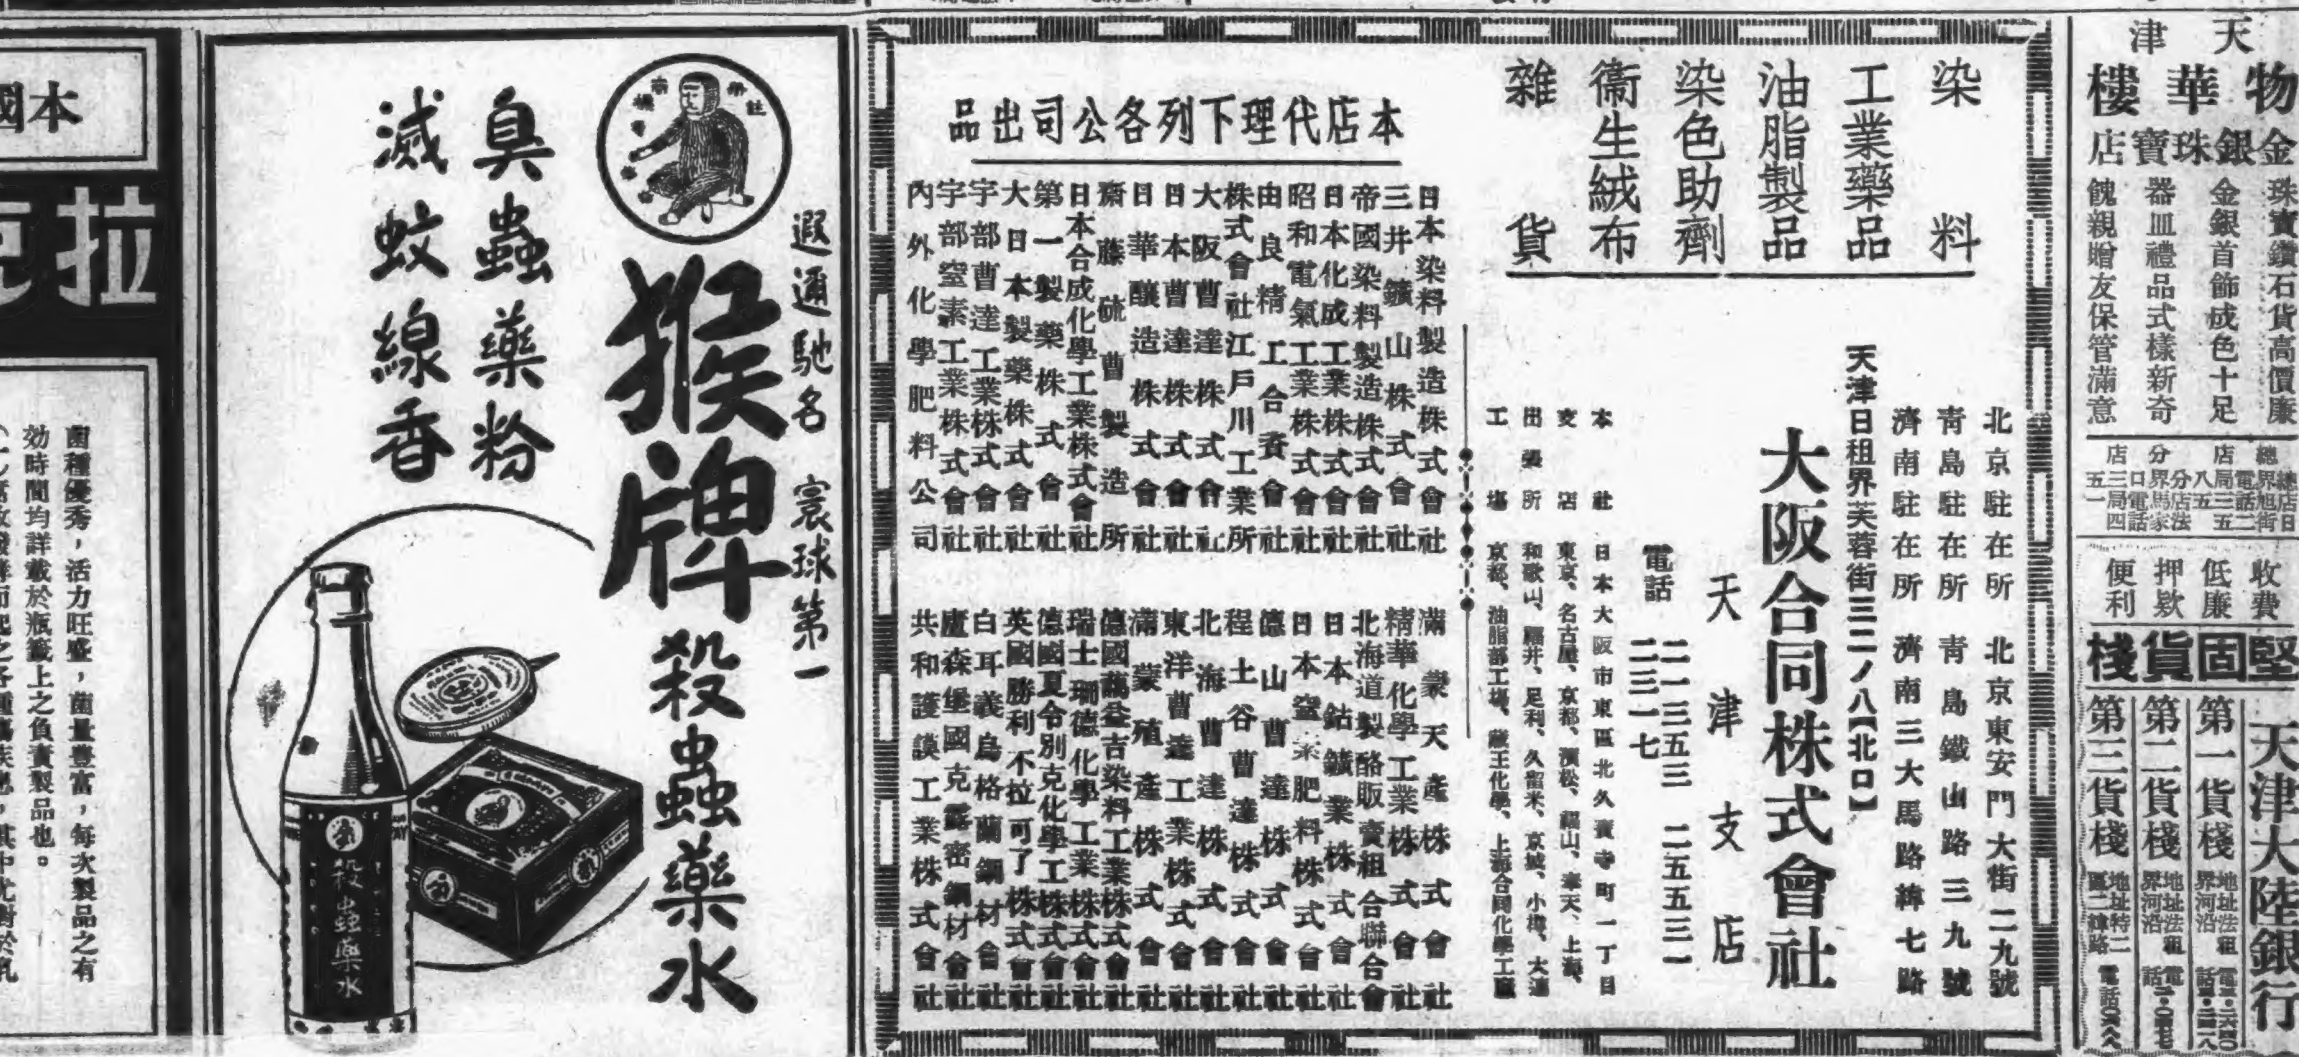 天津
物華樓
金銀珠寶店
珠寶鑽石貨高價廉
金銀首飾成色十足
器皿禮品式樣新奇
餽親贈友保管滿意
總店
分店
總店日界旭街
電話二局三五八五
分店法界馬家口
電話三局四五一
收費低廉
押款便利
堅固貨棧
天津大陸銀行
第一貨棧
地址法租界河沿
第二貨棧
地址法租界河沿
第三貨棧
地址特二區二緯路
染料
工業藥品
油脂製品
染色助劑
衞生絨布
雜貨
北京駐在所 北京東安門大街二九號
青島駐在所 青島鐵山路三九號
濟南駐在所 濟南三大馬路緯七路
天津日租界芙蓉街三二ノ八【北口】
大阪合同株式會社
天津支店
電話 二一三五三 二五五三一
二三一七
本社 日本大阪市東區北久寶寺町一丁目
支店 東京、名古屋、京都、濱松、福山、奉天、上海、
出張所 和歌山、福井、足利、久留米、京城、小樽、大連
工場 京都、油脂部工場、藏王化學、上海合同化學工廠
本店代理下列各公司出品
日本染料製造株式會社
三井鑛山株式會社
帝國染料製造株式會社
日本化成工業株式會社
昭和電氣工業株式會社
由良精工合資會社
株式會社江戸川工業所
大阪曹達株式會社
日本曹達株式會社
日華釀造株式會社
齋藤硫曹製造所
日本合成化學工業株式會社
第一製藥株式會社
大日本製藥株式會社
宇部曹達工業株式會社
宇部窒素工業株式會社
內外化學肥料公司
滿蒙天產株式會社
精華化學工業株式會社
北海道製酪販賣組合聯合會
日本鈷鑛業株式會社
日本窒素肥料株式會社
德山曹達株式會社
程土谷曹達株式會社
北海曹達株式會社
東洋曹達工業株式會社
滿蒙殖產株式會社
德國藹益吉染料工業株式會社
瑞士珊德化學工業株式會社
德國夏令別克化學工株式會社
英國勝利不拉可了株式會社
白耳義烏格蘭鋼材會社
盧森堡國克露密鋼材會社
共和護謨工業株式會社
遐邇馳名 寰球第一
猴牌
殺蟲藥水
臭蟲藥粉
滅蚊線香
殺蟲藥水
本國
拉克
菌種優秀，活力旺盛，菌量豐富，每次製品之有
効時間均詳載於瓶籤上之負責製品也。